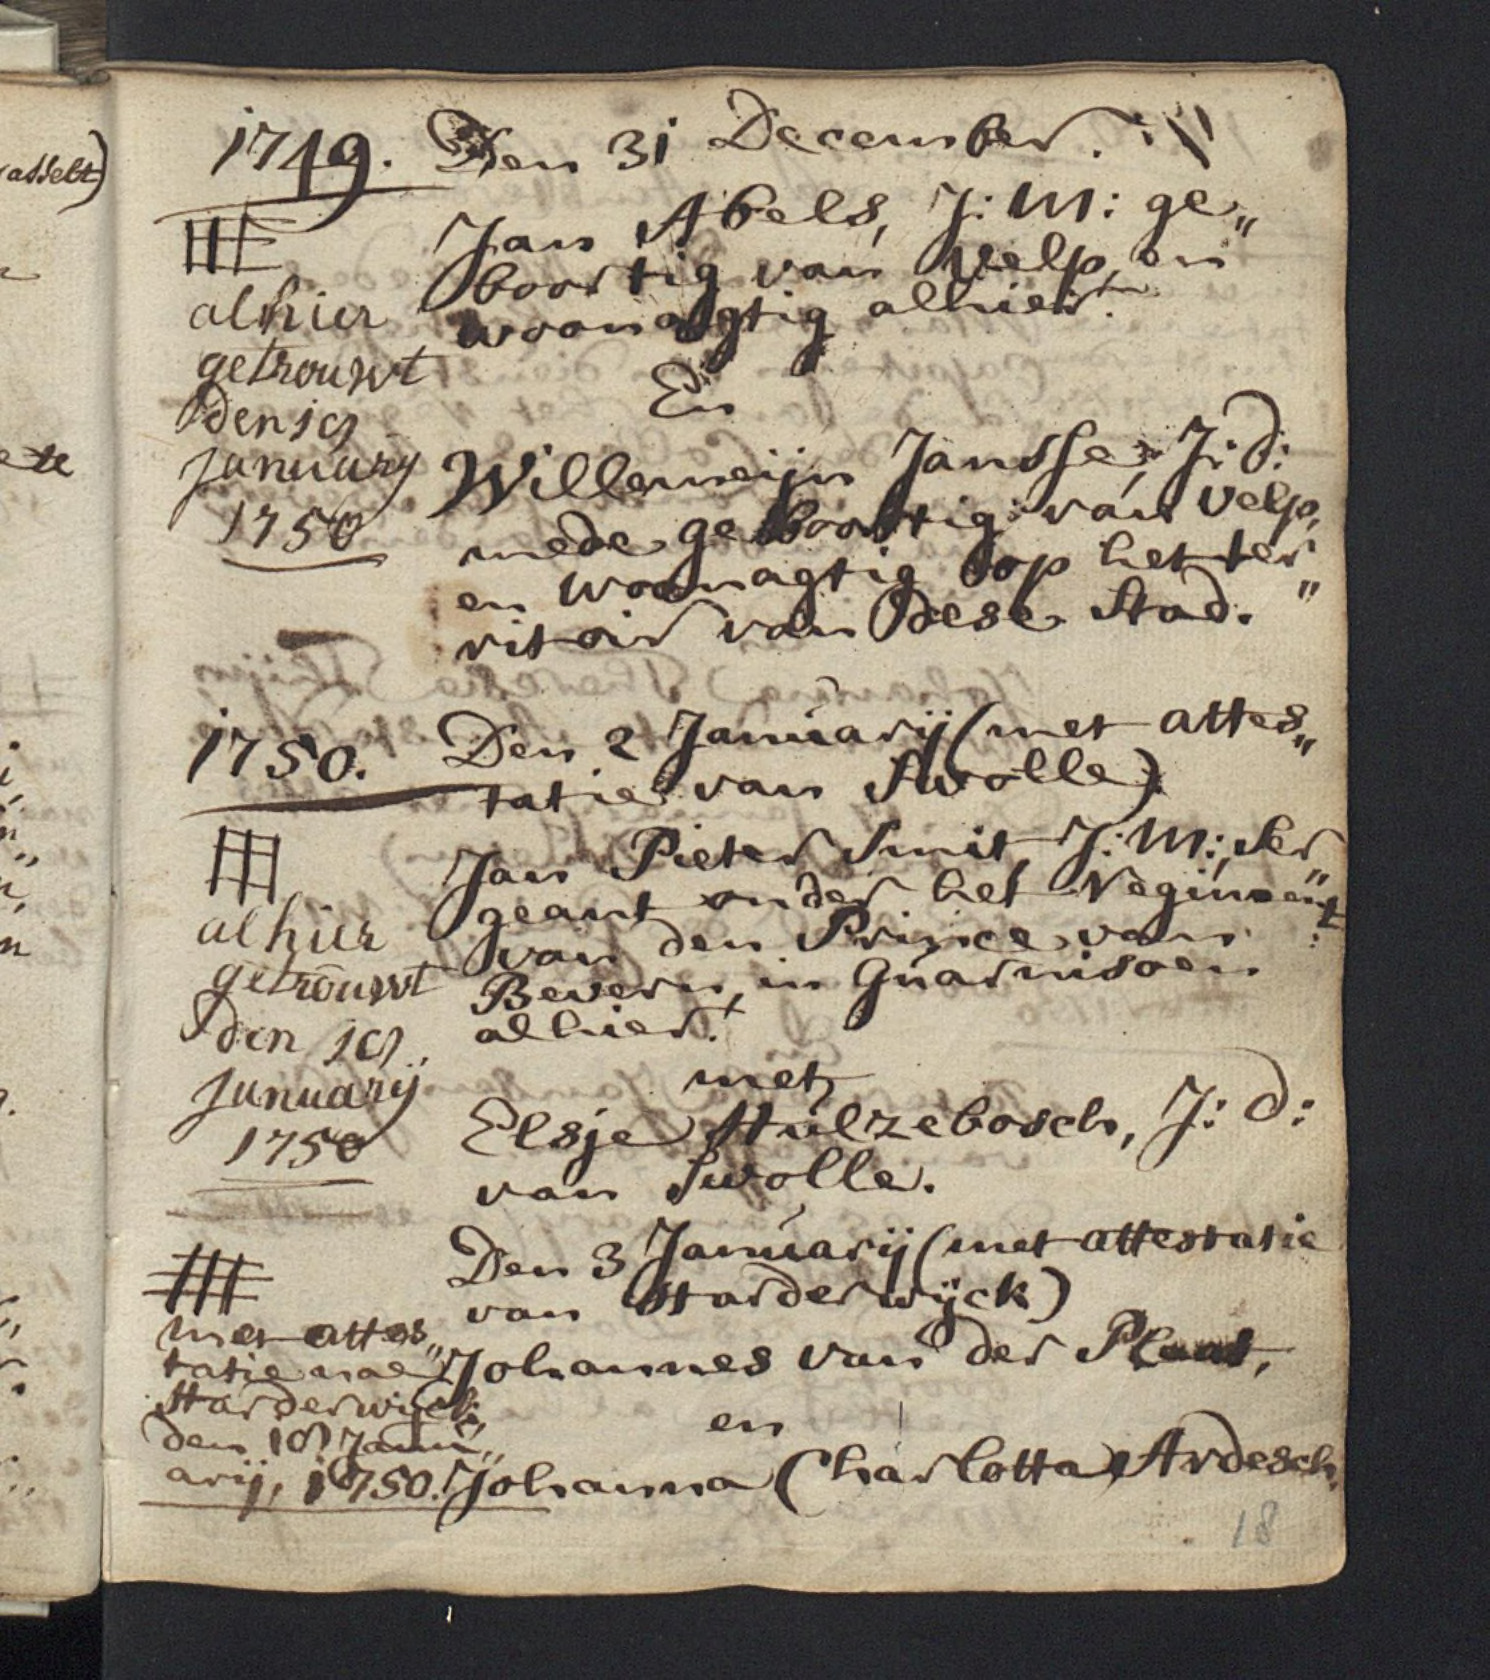 asselt)
1749. Den 31 December.
Jan Abels, J: M: ge„
boortig van Velp, en
woonagtig alhier.
En
Willemeijn Jansse, J: d:
mede geboortig van Velp,
en woonagtig op het ter„
ritoir van dese Stad.
alhier
getrouwt
den 19
January
1750
1750. Den 2 Januarij (met attes„
tatie van Swolle)
Jan Pieter Smit, J: M:, Ser„
geant onder het Regiment
van den Prince van
Bevern, in Guarnisoen
alhier.
met
Elsje Hulzebosch, J: d:
van Swolle.
alhier
getrouwt
den 19
Januarij
1750
Den 3 Januarij (met attestatie
van Harderwijck)
Johannes van der Plaat,
en
Johanna Charlotta Ardesch.
met attes„
tatie nae
Harderwijck,
den 19 Janu„
arij, 1750.
18